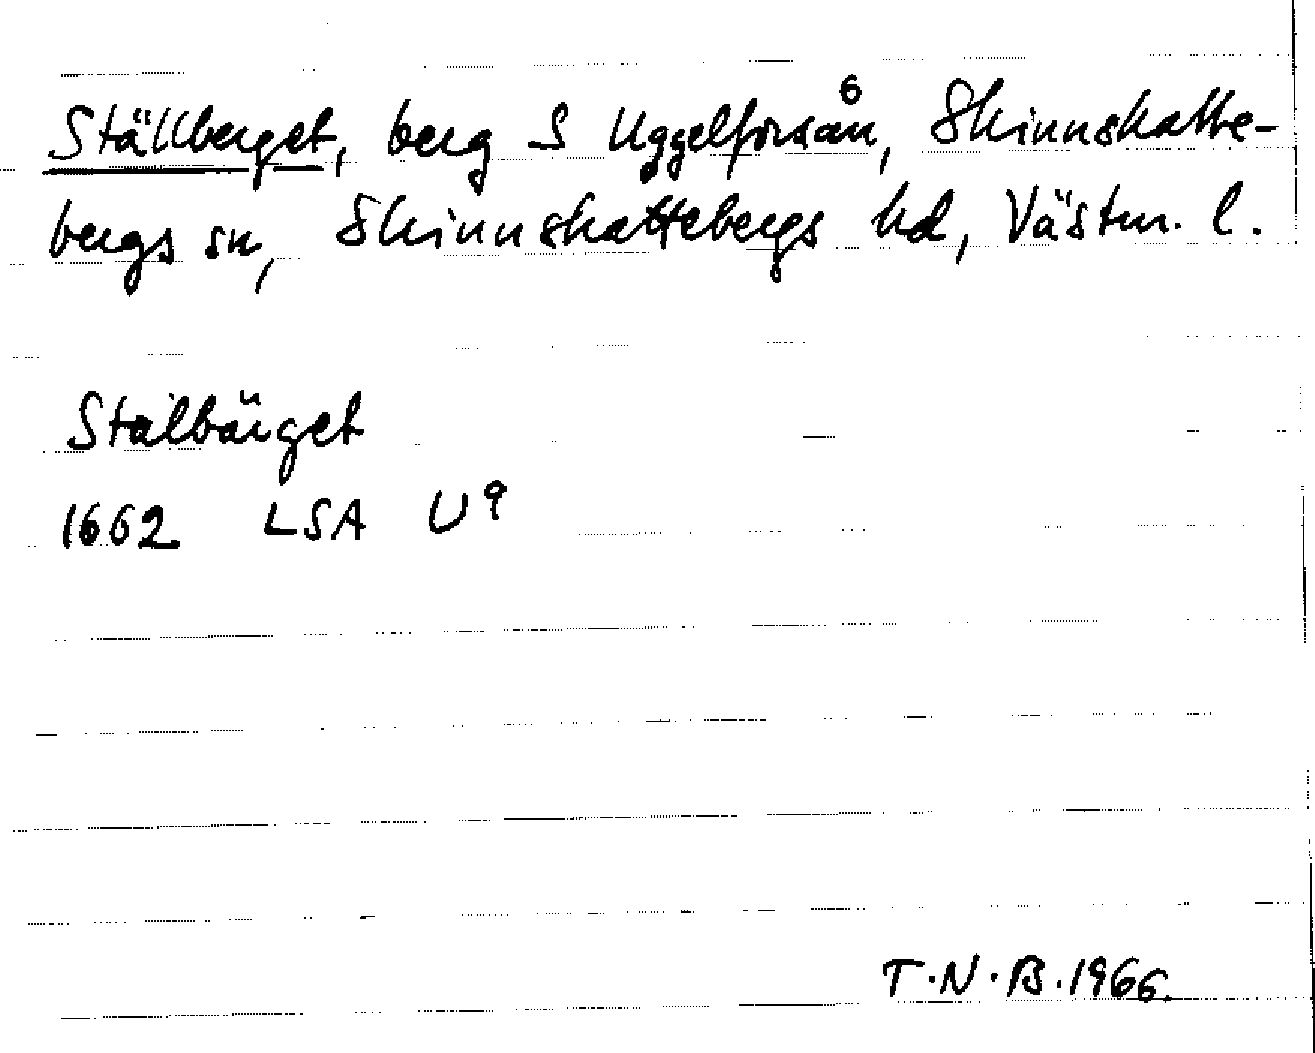 Ställberget, berg S Uggelforsån, Skinnskatte-
bergs sn, Skinnskattebergs hd, Västm. l.
Stälbärget
1662 LSA U9
T.N.B.1966.